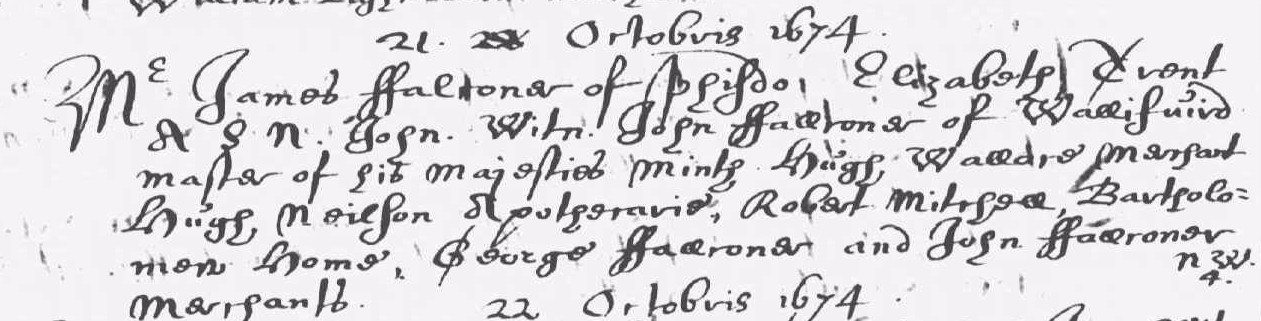 21. Octobris 1674.
Mr James ffalconer of Phisdo, Elizabeth Trent
A S N. John. Witn. John ffalconer of Wallifuird
master of his majesties minth Hugh, Wallace merchant
Hugh, Neilson Apothecarie, Robert Mitchell, Bartholo=
mew Home, George ffalconer and John ffalconer
merchants.
22 Octobris 1674.